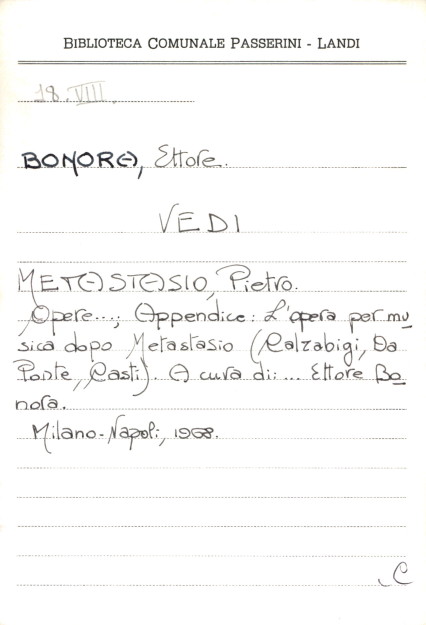 BIBLIOTECA COMUNALE PASSERINI - LANDI
18.VIII.
BONORA, Ettore.
VEDI
METASTASIO, Pietro.
Opere...; Appendice: L'opera per mu
sica dopo Metastasio (Calzabigi, Da
Ponte, Casti). A cura di: ... Ettore Bo
nora.
Milano-Napoli, 1968.
C